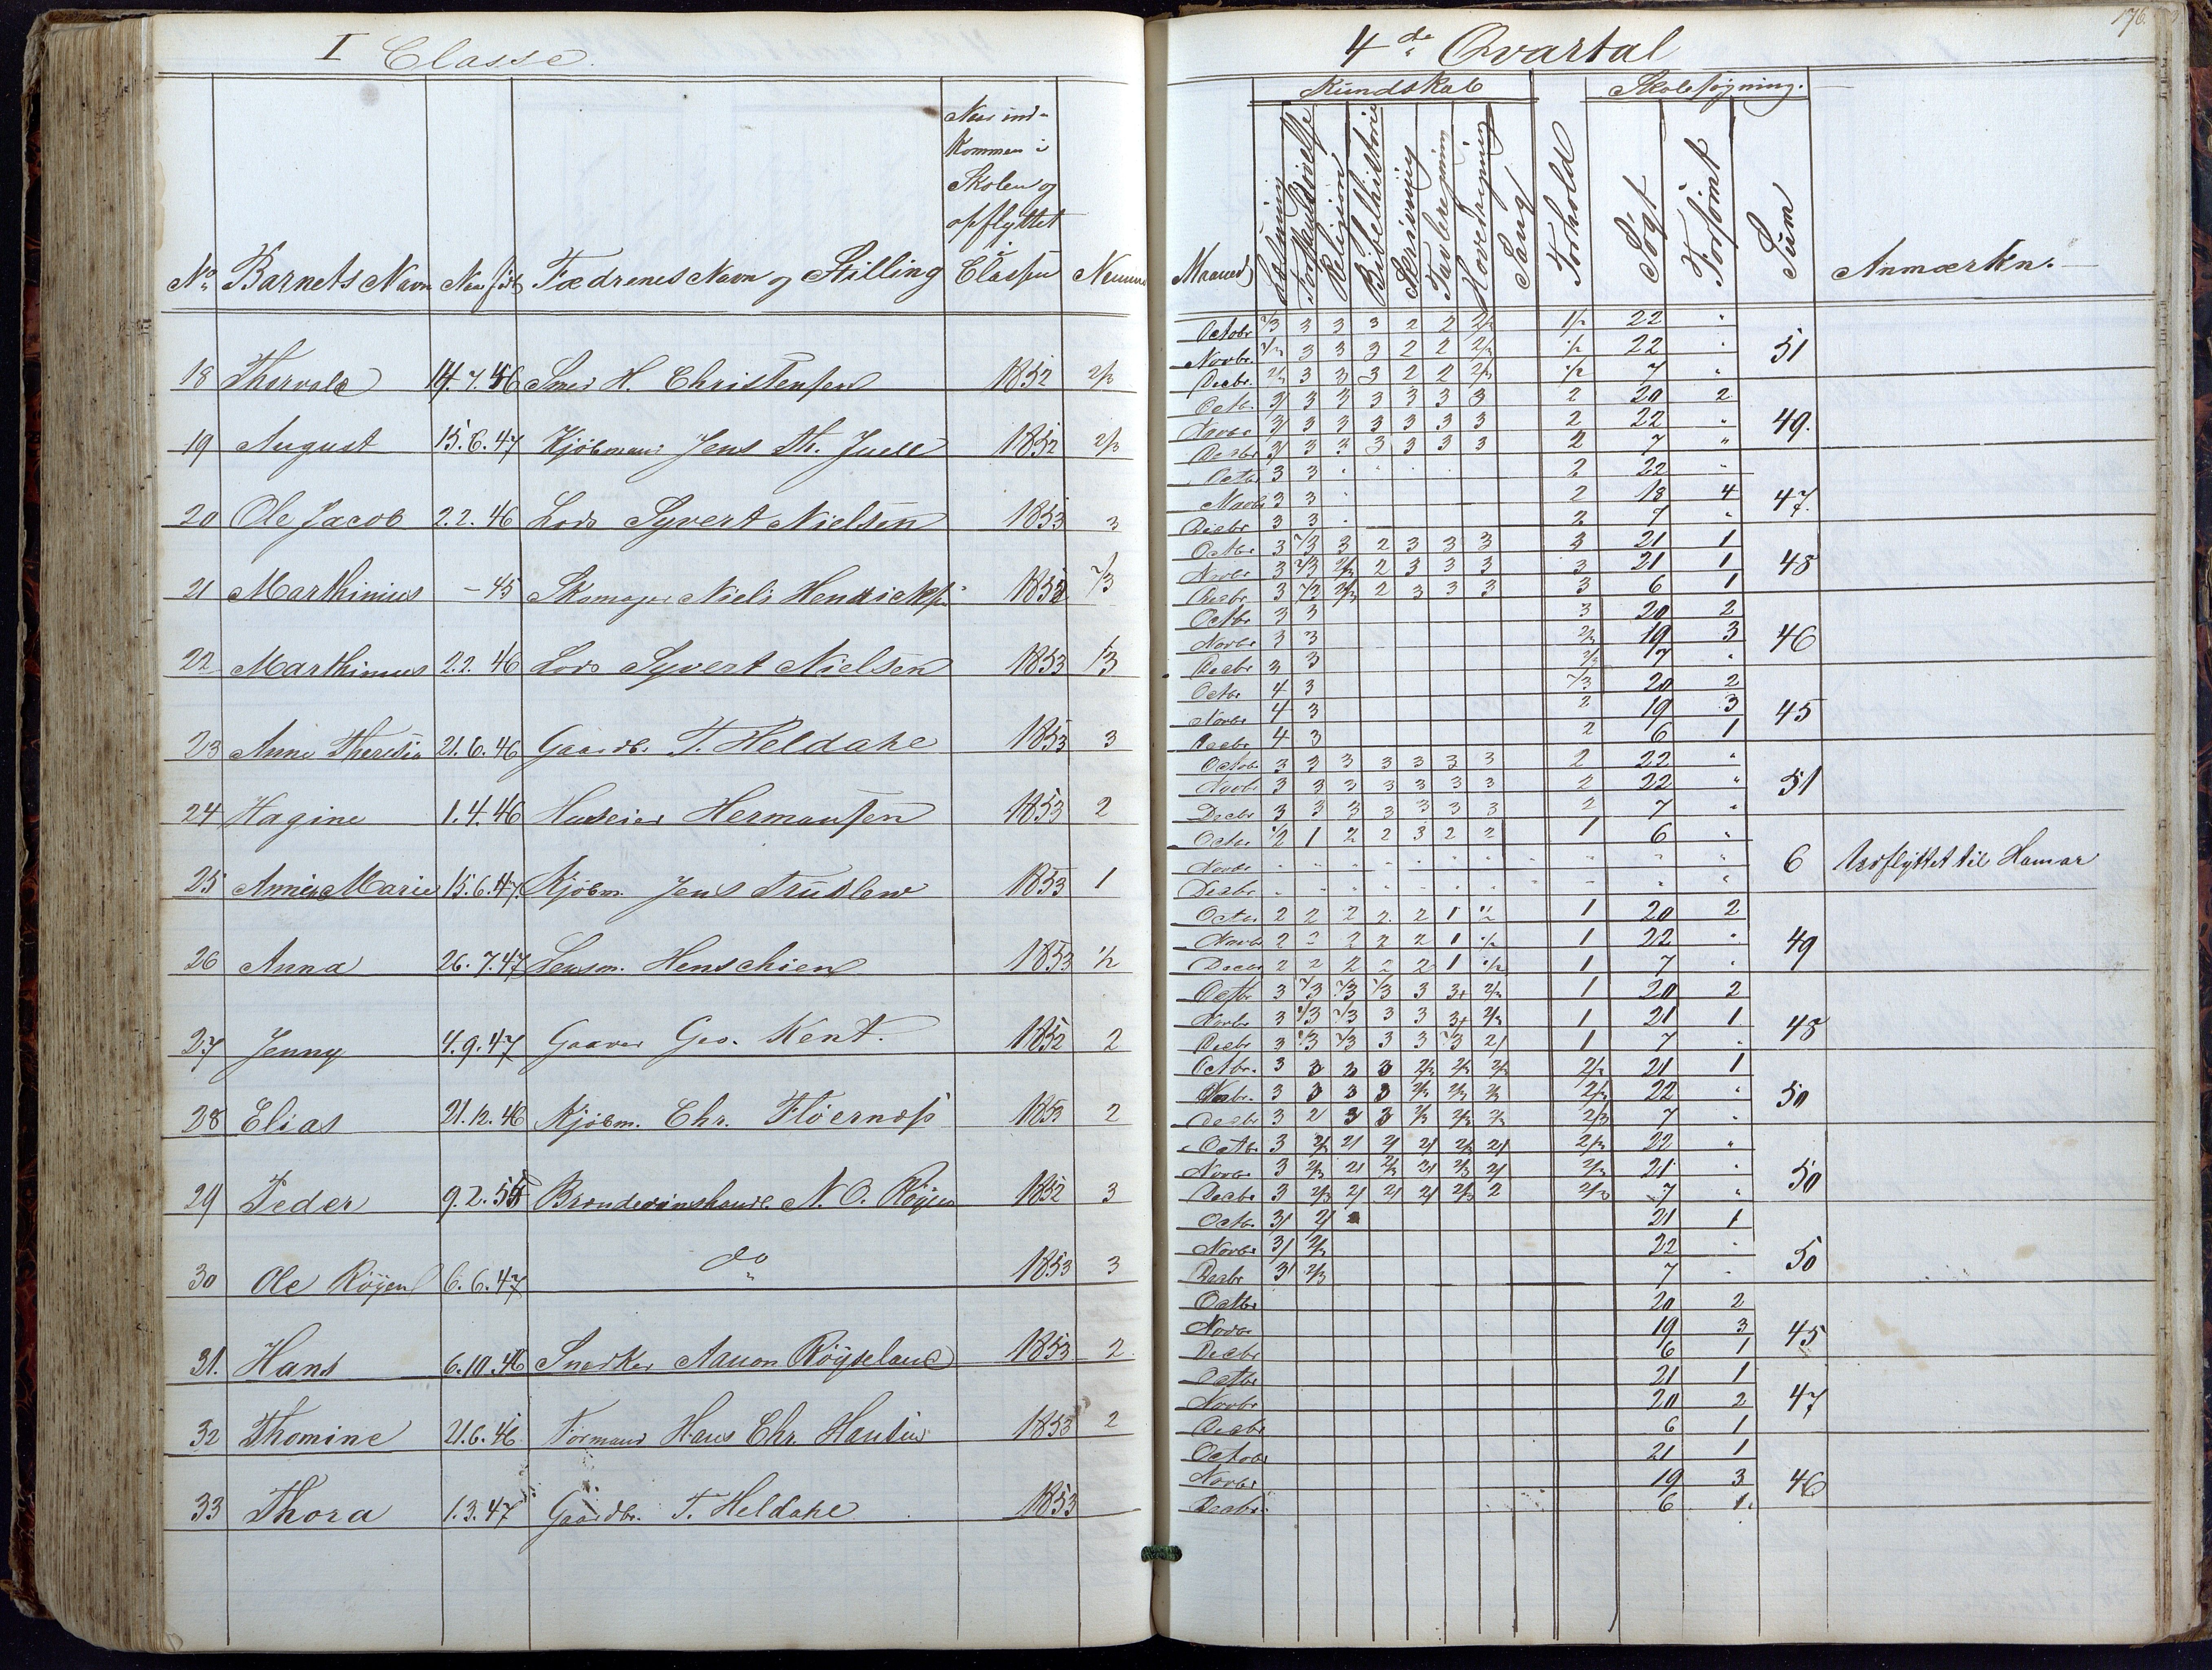 I Classe.
No Barnets Navn Naar født Fædrenes Navn og Stilling Naar ind-
kommen i
Skolen og
opflyttet
i
Classen
18 Thorvald 14.7.46 H. Christensen 1852 2/3
19 August 15.6.47 Kjöbmand Jens Th. Juell 1852 2/3
20 Ole Jacob 2.2.46 Lods Syvert Nielsen 1853 3
21 Marthinius - 45 Skomager Niels Hendricks 1852 2/3
22 Marthinius 2.2.46 Lods Syvert Nielsen 1853
23 Anne Theresia 21.6.46 Gaardb. T. Heldahl 1853 3
24 Hagine 1.4.46 Huseier Hermansen 1853 2
25 Marie 15.6.47 Kjöbm. Jens 1853 1
26 Anna 26.7.47 Lensm. Henschien 1853 1/2
27 Jenny 4.9.47 Geo. Kent. 1852 2
28 Elias 21.12.46 Kjöbm. Chr. 1853 2
29 Peder 9.2. N. O. 1852 3
30 Ole Röyen 6.6.47 do 1853 3
31. Hans 6.10.46 Snedker Aanon Röyseland 1853 2
32 Thomine 21.6.46 Formand Hans Chr. Hansen 1853 2
33 Thora 1.3.47 Gaardbr. T. Heldahl 1853
176.
4de Qvartal
Kundskab Skolesøgning.
Maaned Læsning Religion Bibelhistorie Skrivning Tavleregning Hovedregning Sang Forhold Søgt Forsømt Sum Anmærkn.
Octobr 2/3 3 3 3 2 2 2/3 1/2 22 "
Novbr. 2/3 3 3 3 2 2 2/3 1/2 22 " 51
Decbr. 2/3 3 3 3 2 2 2/3 1/2 7 "
Octbr. 3/ 3 3 3 3 3 3 2 20 2
Novbr 3/ 3 3 3 3 3 3 2 22 " 49.
Decbr 3/ 3 3 3 3 3 3 2 7 "
Octb 3 3 2 22 "
Novbr 3 3 2 18 4 47.
Decbr 3 3 2 7 "
Octbr 3 2/3 3 2 3 3 3 3 21 1
Novbr 3 2/3 2/3 2 3 3 3 3 21 1 48
Decbr 3 2/3 2/3 2 3 3 3 3 6 1
Octbr 3 3 3 20 2
Novbr 3 3 2/3 19 3 46
Decbr 3 3 2/3 7 "
Octbr 4 3 2/3 20 2
Novbr 4 3 2 19 3 45
Decbr 4 3 2 6 1
Octobr 3 3 3 3 3 3 3 2 22 "
Novbr 3 3 3 3 3 3 3 2 22 " 51
Decbr 3 3 3 3 3 3 3 2 7 "
Octbr 1/2 1 2 2 3 2 2 1 6 "
Novbr " " " " " " " " " " 6 Udflyttet til Hamar
Decbr " " " " " " " " " "
Octbr 2 2 2 2 2 1 1/2 1 20 2
Novbr 2 2 2 2 2 1 1/2 1 22 " 49
Decbr 2 2 2 2 2 1 1/2 1 7 "
Octbr 3 2/3 2/3 2/3 3 3+ 2/3 1 20 2
Novbr 3 2/3 2/3 3 3 3+ 2/3 1 21 1 48
Decbr 3 2/3 2/3 3 3 2/3 2/ 1 7 "
Octbr. 3 3 3 3 2/3 2/3 2/3 2/3 21 1
Novbr. 3 3 3 3 2/3 2/3 2/3 2/3 22 " 50
Decbr 3 2 3 3 2/3 2/3 2/3 2/3 7 "
Octbr. 3 2/3 2/ 2/ 2/ 2/3 2/ 2/3 22 "
Novbr 3 2/3 2/ 2/3 2/ 2/3 2/ 2/3 21 " 50
Decbr 3 2/3 2/ 2/ 2/ 2/3 2 2/3 7 "
Octbr. 3/ 2/ 21 1
Novbr 3/ 2/3 22 " 50
Decbr 3/ 2/3 7 "
Octbr 20 2
Novbr 19 3 45
Decbr 6 1
Octbr 21 1
Novbr 20 2 47
Decbr 6 1
Octobr 21 1
Novbr 19 3 46
Decbr. 6 1.